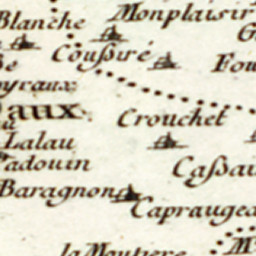 Blanche
Monplaisir
Coußiré
Fou
yraux
aux
Crouchet
Lalau
adouin
Caßau
Baragnon
Caprauged
la Moutiere
M